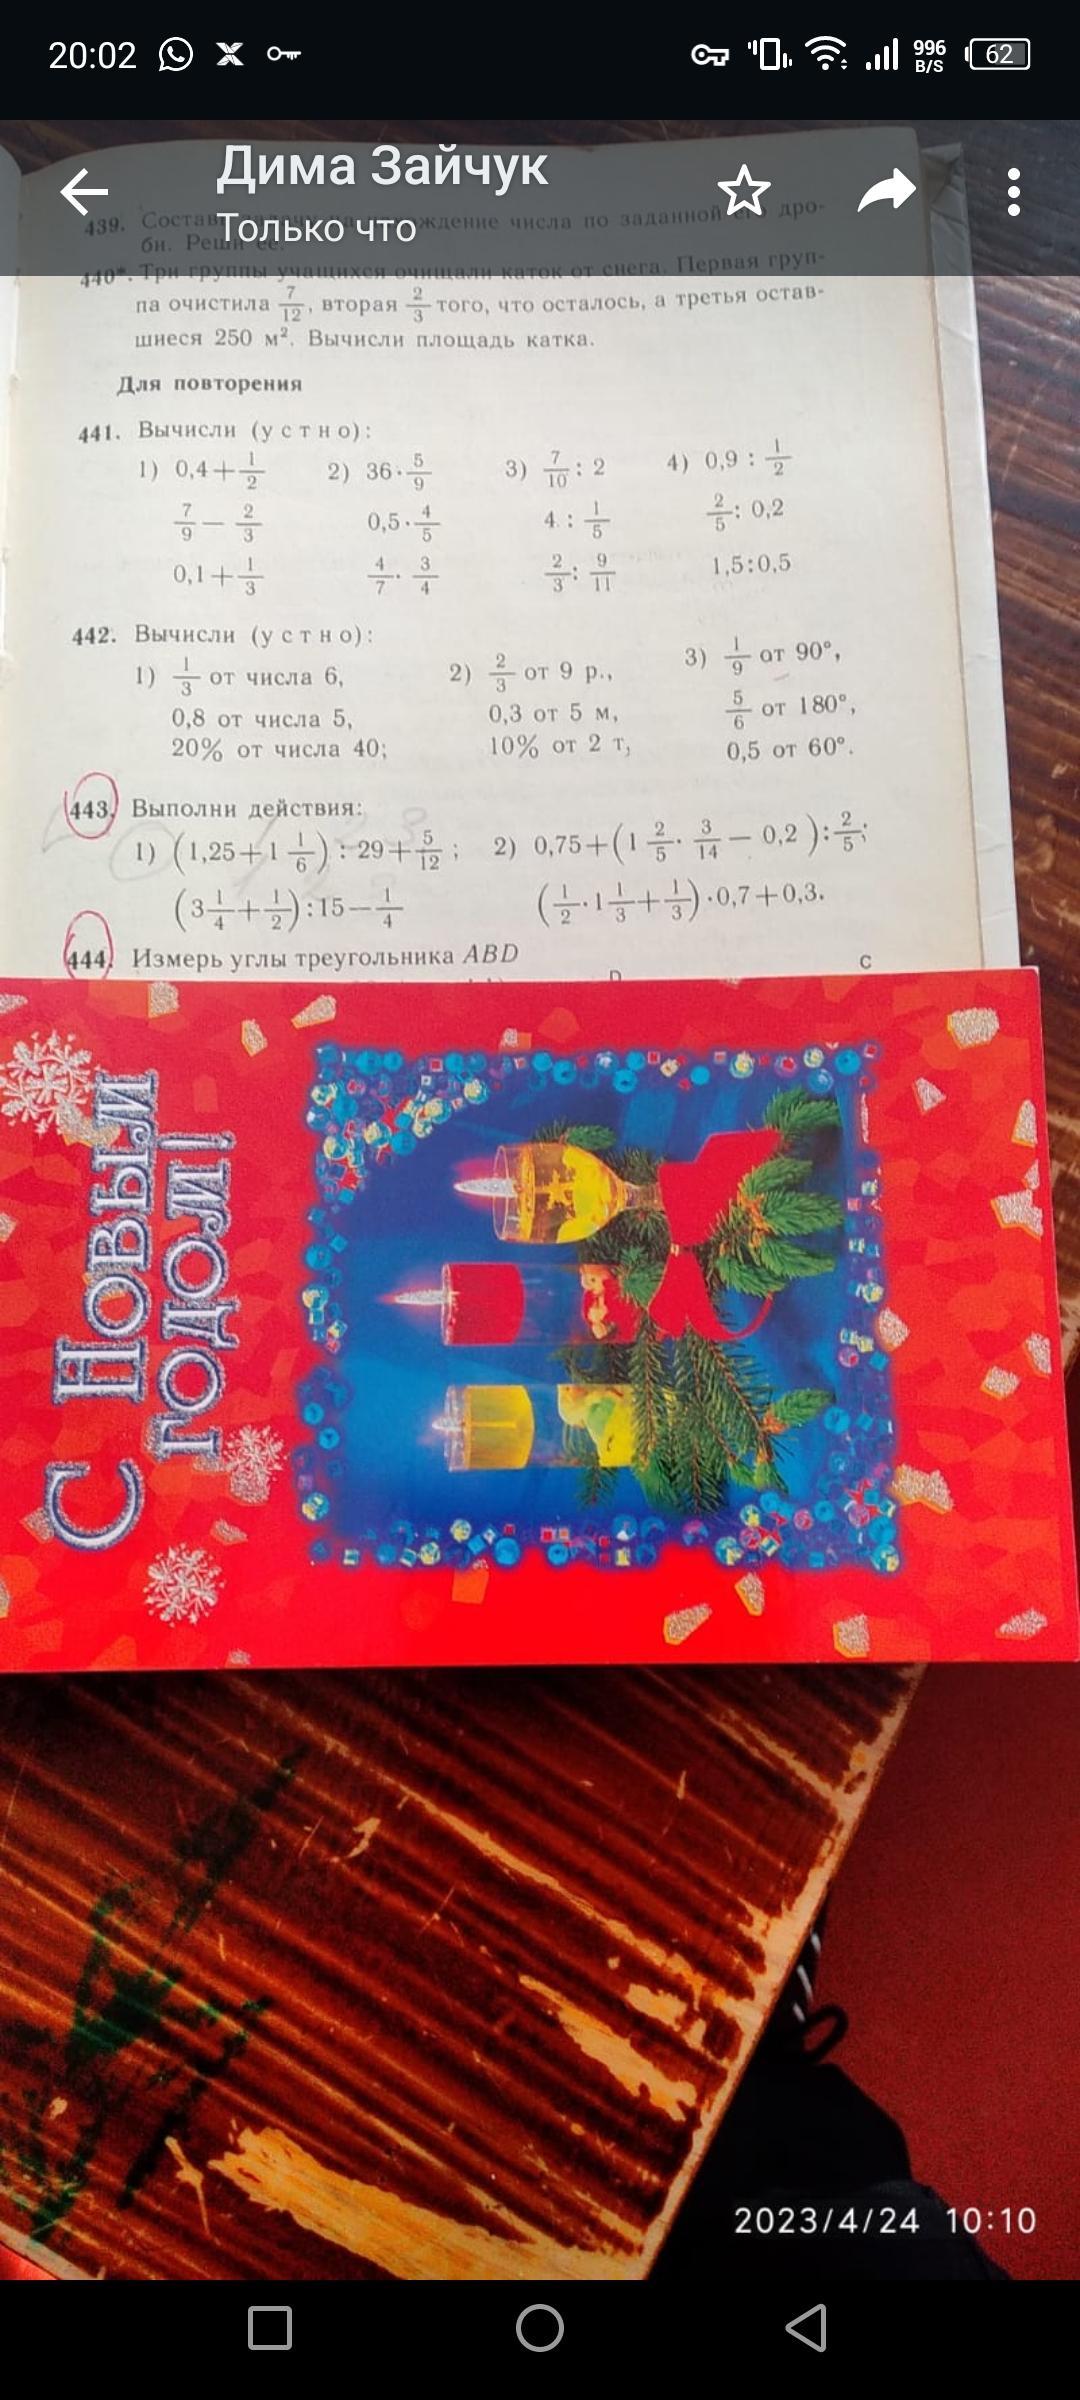 20:02
996 B/S
62
Дима Зайчук
Только что
439. Состав на нахождение числа по заданной его дро-
би. Реши ее.
440*. Три группы учащихся очищали каток от снега. Первая груп-
па очистила 7/12, вторая 2/3 того, что осталось, а третья остав-
шиеся 250 м². Вычисли площадь катка.
Для повторения
441. Вычисли (устно):
1) 0,4+1/2 2) 36·5/9 3) 7/10 : 2 4) 0,9 : 1/2
7/9 − 2/3 0,5·4/5 4 : 1/5 2/5 : 0,2
0,1+1/3 4/7 · 3/4 2/3 : 9/11 1,5:0,5
442. Вычисли (устно):
1) 1/3 от числа 6, 2) 2/3 от 9 р., 3) 1/9 от 90°,
0,8 от числа 5, 0,3 от 5 м, 5/6 от 180°,
20% от числа 40; 10% от 2 т, 0,5 от 60°.
443. Выполни действия:
1) (1,25+1 1/6) : 29+5/12; 2) 0,75+(1 2/5 · 3/14 − 0,2) : 2/5;
(3 1/4+1/2):15−1/4 (1/2·1 1/3+1/3)·0,7+0,3.
444. Измерь углы треугольника ABD
C
С Новым
годом!
2023/4/24 10:10